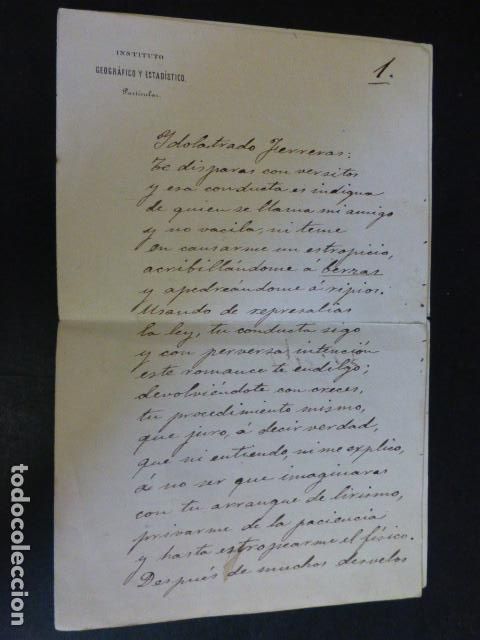 INSTITUTO
GEOGRÁFICO Y ESTADÍSTICO.
Particular.
1.
Idolatrado Ferreras:
Te disparas con versitos
y esa conducta es indigna
de quien se llama mi amigo
y no vacila, ni teme
en causarme un estropicio,
acribillándome á berzas
y apedreándome á ripios.
Usando de represalias
la ley, tu conducta sigo
y con perversa intención
este romance te endilgo;
devolviéndote con creces,
tu procedimiento mismo,
que juro, á decir verdad,
que ni entiendo, ni me explico,
á no ser que imaginaras
con tu arranque de lirismo,
privarme de la paciencia
y hasta estropearme el físico.
Después de muchos desvelos
todocoleccion.net